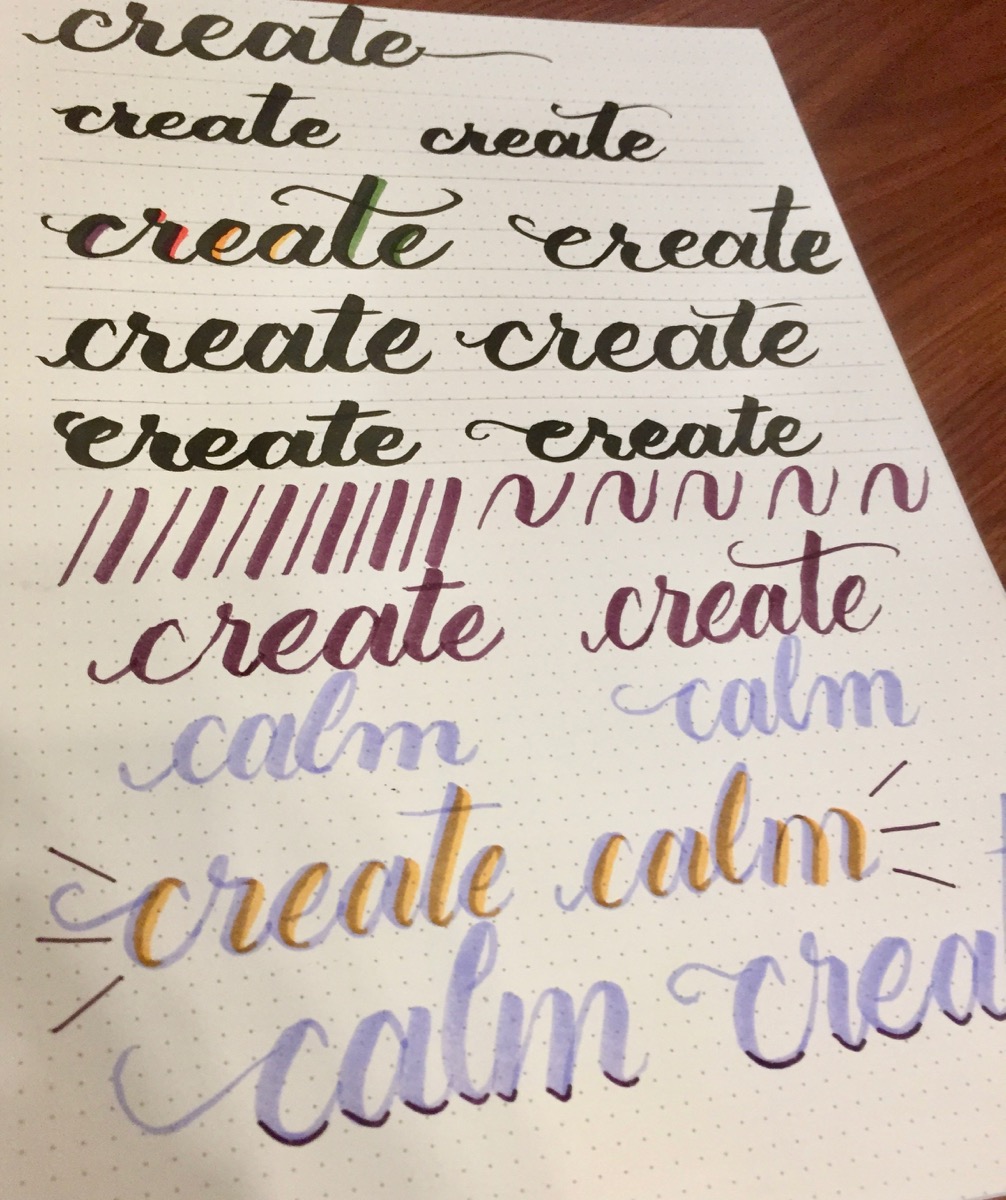 create
create create
create create
create create
create create
create create
calm calm
create calm
calm crea